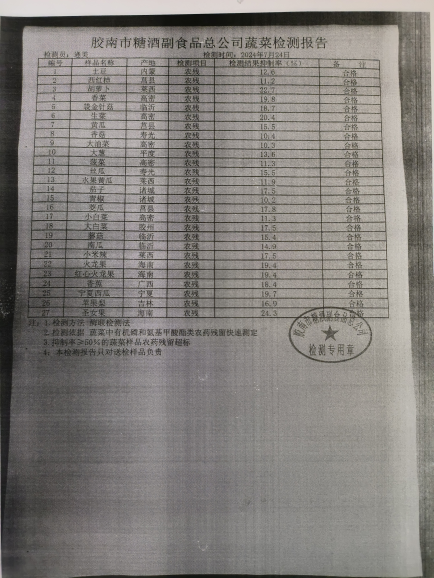 胶南市糖酒副食品总公司蔬菜检测报告
检测员：逄美 检测时间：2024年7月24日
编号 样品名称 产地 检测项目 检测结果抑制率（%） 备 注
1 土豆 内蒙 农残 12.6 合格
2 西红柿 莒县 农残 11.2 合格
3 胡萝卜 莱西 农残 22.7 合格
4 香菜 高密 农残 19.8 合格
5 袋金针菇 临沂 农残 18.7 合格
6 生菜 高密 农残 20.4 合格
7 黄瓜 莒县 农残 15.5 合格
8 香菇 寿光 农残 10.4 合格
9 大油菜 高密 农残 10.3 合格
10 大葱 平度 农残 12.6 合格
11 菠菜 高密 农残 11.3 合格
12 丝瓜 寿光 农残 15.5 合格
13 水果黄瓜 莱西 农残 11.9 合格
14 茄子 诸城 农残 17.5 合格
15 青椒 诸城 农残 10.2 合格
16 莒县 农残 17.8 合格
17 小白菜 高密 农残 11.3 合格
18 大白菜 胶州 农残 17.5 合格
19 蘑菇 临沂 农残 15.4 合格
20 南瓜 临沂 农残 14.9 合格
21 小米辣 莱西 农残 17.5 合格
22 火龙果 海南 农残 19.4 合格
23 红心火龙果 海南 农残 19.4 合格
24 香蕉 广西 农残 18.4 合格
25 宁夏西瓜 宁夏 农残 19.7 合格
26 苹果梨 吉林 农残 16.9 合格
27 圣女果 海南 农残 24.3 合格
注：1.检测方法 酶联检测法
2.检测依据 蔬菜中有机磷和氨基甲酸酯类农药残留快速测定
3.抑制率≥50%的蔬菜样品农药残留超标
4、本检测报告只对送检样品负责
胶南市糖酒副食品总公司
检测专用章